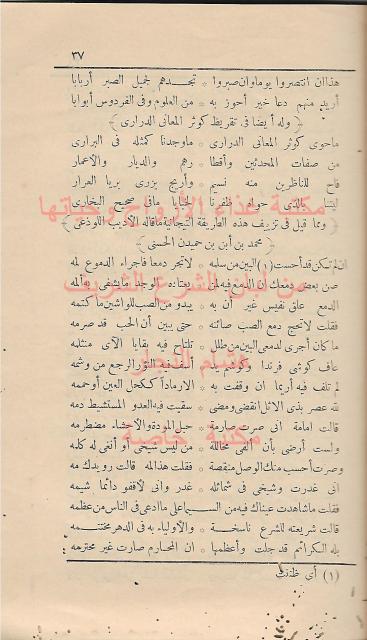 ٣٧
هذا ان انتصروا يوما وان صبروا * تجدهم لجميل الصبر أربابا
أريد منهم دعا خير أحوز به * من العلوم وفى الفردوس أبوابا
﴿ وله أيضا فى تقريظ كوثر المعانى الدرارى ﴾
ماحوى كوثر المعانى الدرارى * ماوجدنا كمثله فى البرارى
من صفات المحدثين وأقطا * رهم والديار والاعمار
فاح للناظرين منه نسيم * وأريج يزرى بريا العرار
ليتنا بالذى حواه ظفرنا * لخبايا مافى صحيح البخارى
﴿ ومما قيل فى تزييف هذه الطريقة التيجانية ماقاله الأديب اللوذعى ﴾
﴿ محمد بن ابن بن حميدن الحسنى ﴾
ان لم تكن قد أحست (١) البين من سلمه * لاتجر دمعا فاجراء الدموع لمه
صن بعض دمعك ان الدمع فيه لمن * يعتاده الوجد مايشفى به ألمه
الدمع علق نفيس غير أن به * يبدو من الصب للواشين ما كتمه
فقلت لاتحج دمع الصب صائنه * حتى يبين أن الحب قد صرمه
ما كان أجرى لدمعى البين من طلل * تلتاح فيه بقايا الآى منثلمه
عاف كوشى فرندا وكوشى يد * أسف فيه النؤر الرجع من وشمه
لم تلف فيه أريما ان وقفت به * الارمادا ككحل العين أو حممه
لله عصر بذى الاثل انقضى ومضى * سقيت فيه العدو المستشيط دمه
قالت امامة انى صرت صارمة * حبل المودة والاحشاء مضطرمه
ولست أرضى بأن ألقى محاللة * من ليس شيخى أو ألفى له كلمه
وصرت أحسب منك الوصل منقصة * فقلت هذا لمه قالت رويدك مه
انى غدرت وشيخى فى شمائله * غدر وانى لاقفو دائما شيمه
فقلت ماشاهدت عيناك فيه من * السيما على ما ادعى فى الناس من عظمه
قالت شريعته للشرع ناسخة * والاولياء به فى الدهر مختتمه
بله الكرائم قد جلت وأعظمها * ان المحارم صارت غير محترمه
(١) أى ظننت
مكتبة غذاء الأرواح وحياتها
من ابن الشرع الشريف
مكتبة خاصة